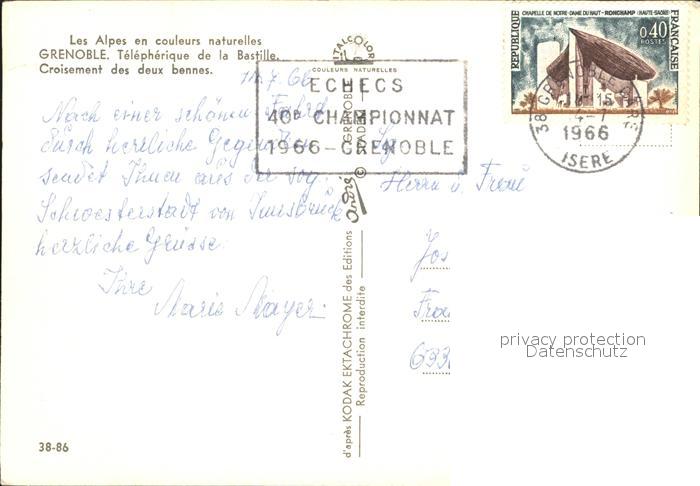 Les Alpes en couleurs naturelles
GRENOBLE. Téléphérique de la Bastille.
Croisement des deux bennes.
7.66
Nach einer schönen Fahrt
durch herrliche Gegenden
sendet Ihnen aus der sog.
Schwesterstadt von Innsbruck
herzliche Grüsse
Ihre
Marie Mayer
38-86
ITALCOLOR
COULEURS NATURELLES
ECHECS
40e CHAMPIONNAT
1966 - GRENOBLE
GRENOBLE
André
©
d'après KODAK EKTACHROME des Editions
Reproduction interdite
RÉPUBLIQUE FRANÇAISE
CHAPELLE DE NOTRE-DAME DU HAUT - RONCHAMP (HAUTE-SAÔNE)
0,40
POSTES
38 GRENOBLE GARE
1966
ISERE
Herrn u. Frau
Jos
Frau
633
privacy protection
Datenschutz